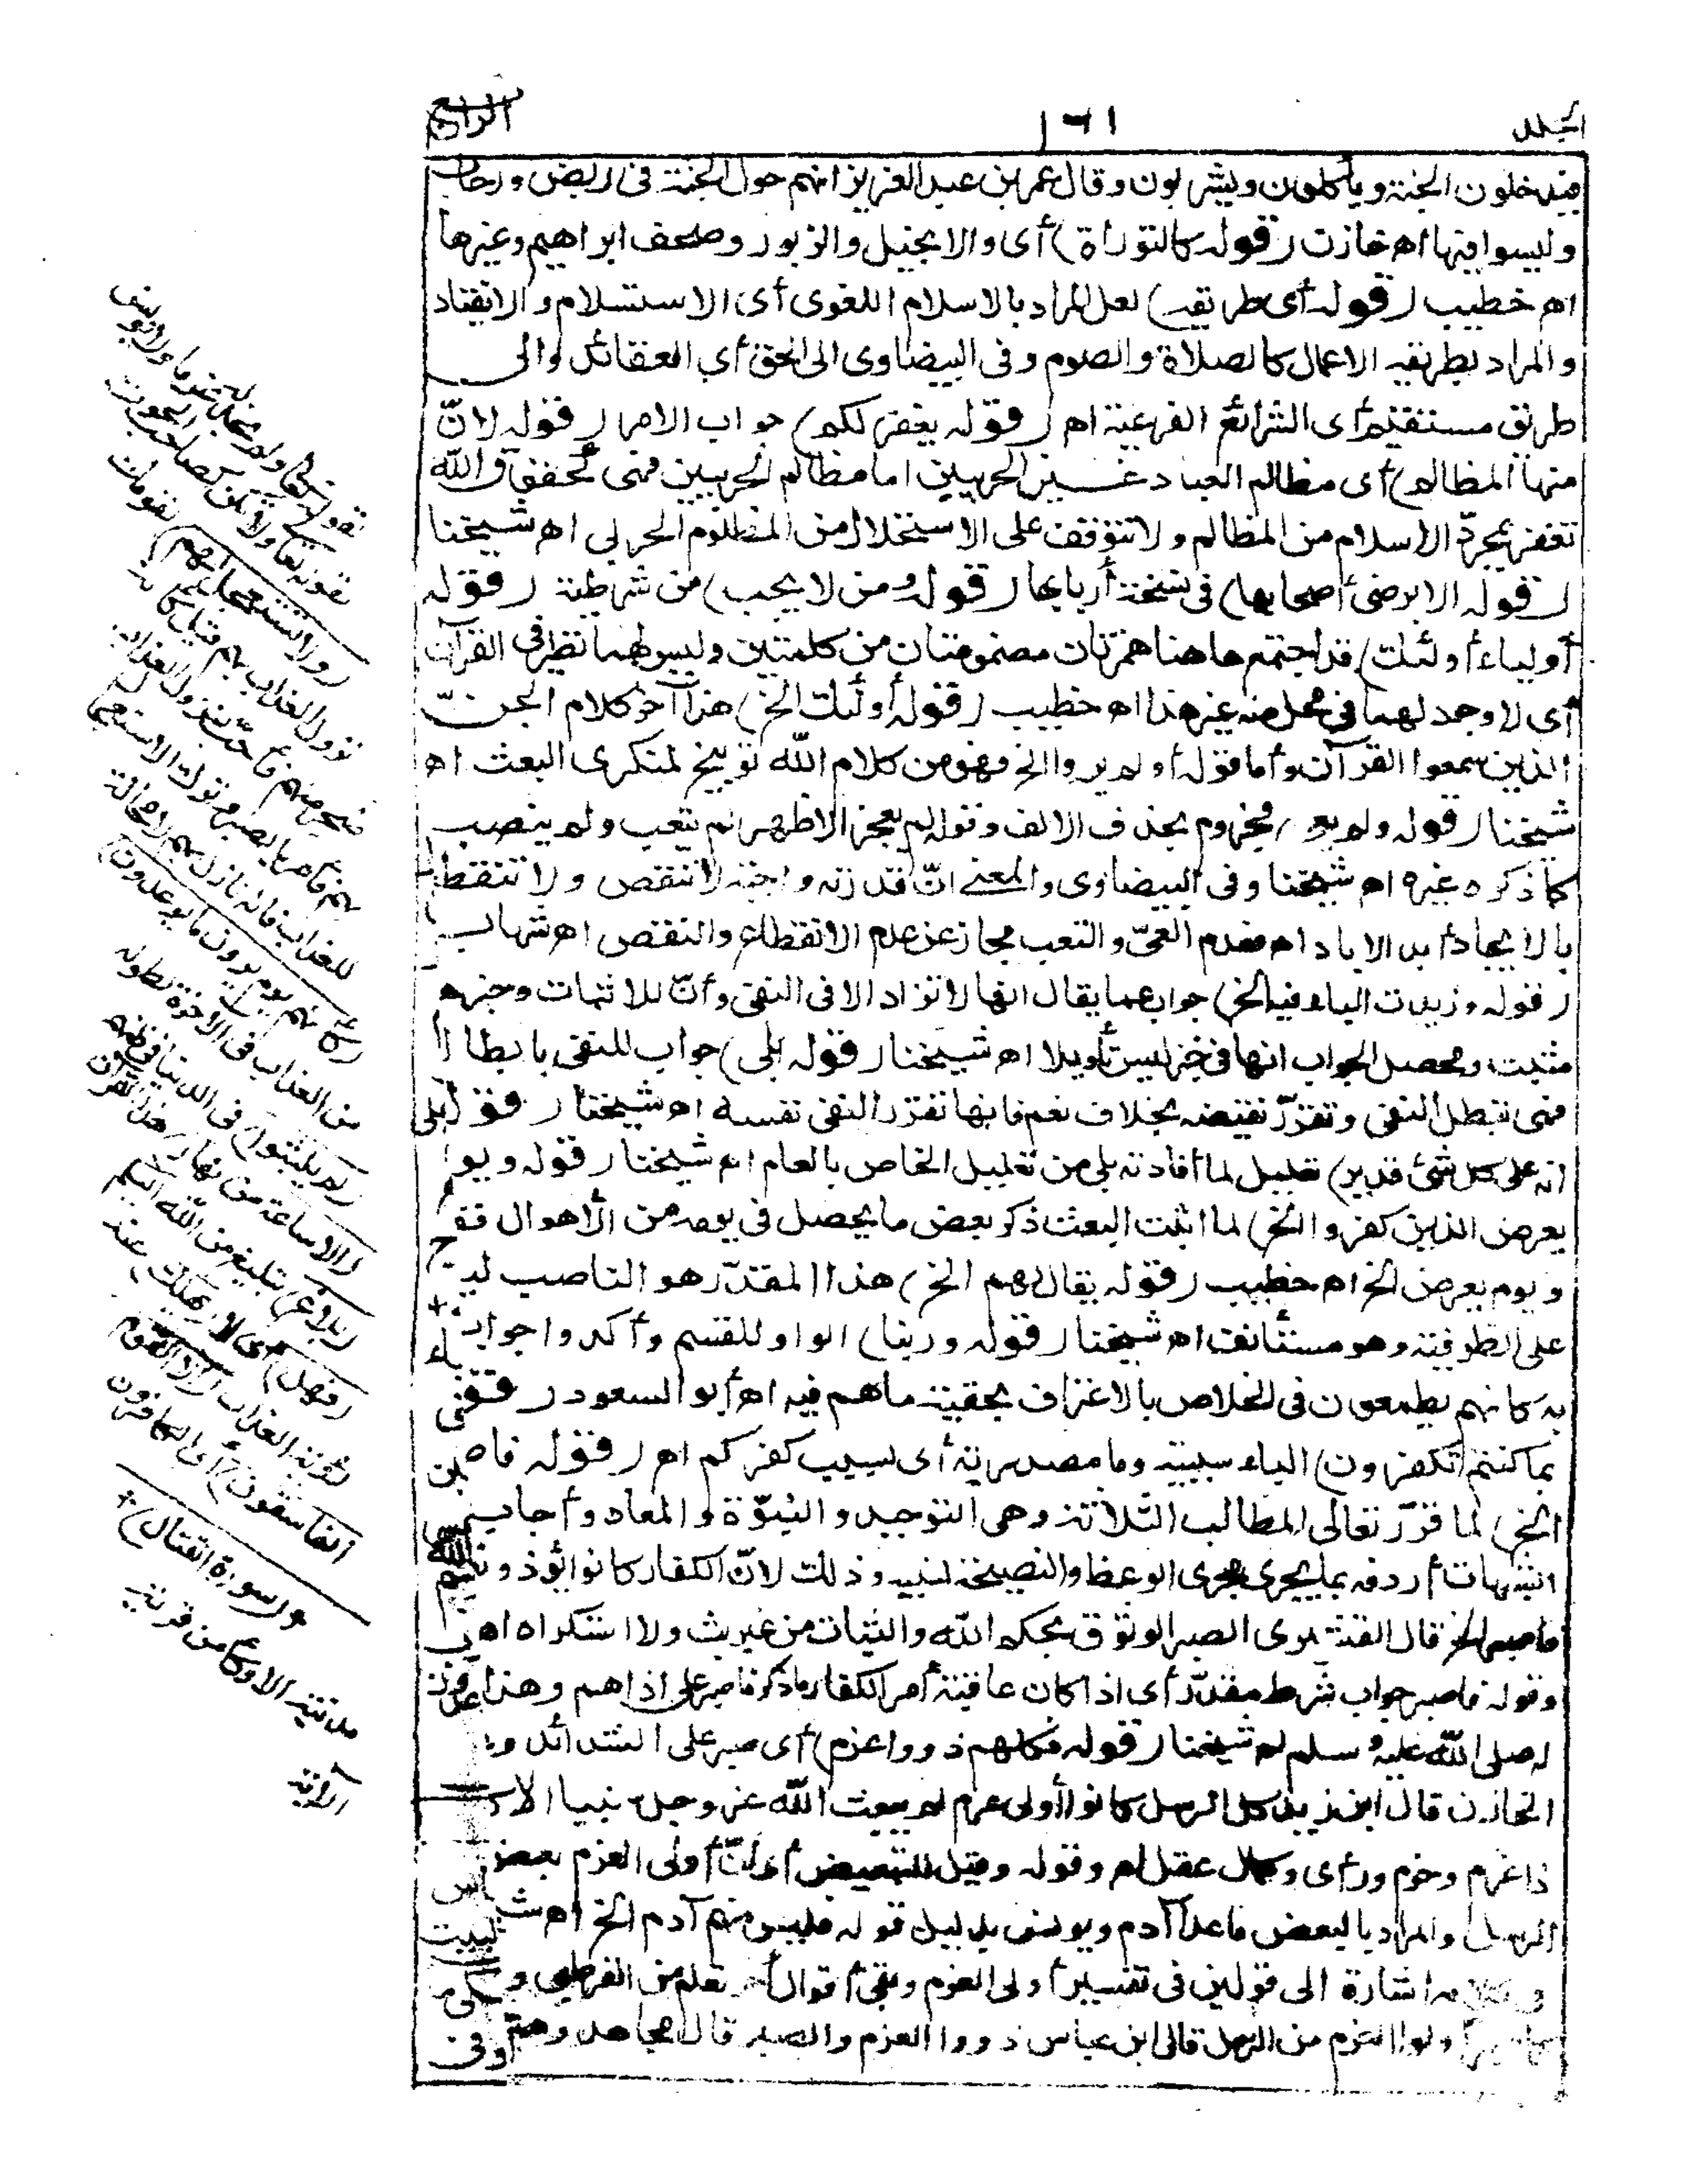 المجلد
١٦١
الرابع
فيدخلون الجنة ويأكلون ويشربون وقال عمر بن عبد العزيز انهم حول الجنة في ربض ورحاب
وليسوا فيها اه خازن (قوله كالتوراة) أى والانجيل والزبور وصحف ابراهيم وغيرها
اه خطيب (قوله أى طريقه) لعل المراد بالاسلام اللغوى أى الاستسلام والانقياد
والمراد بطريقه الاعمال كالصلاة والصوم وفى البيضاوى الى الحق أي العقائد والى
طريق مستقيم أى الشرائع الفرعية اه (قوله يغفر لكم) جواب الامر (قوله لانّ
منها المظالم) أى مظالم العباد غير الحربيين اما مظالم الحربيين فهى حق الله
تغفر بمجرّد الاسلام من المظالم ولا تتوقف على الاستحلال من المظلوم الحربى اه شيخنا
(قوله الا برضى أصحابها) فى نسخة أربابها (قوله ومن لا يجب) من شرطية (قوله
أولياء أولئك) قد اجتمع هاهنا همزتان مضمومتان من كلمتين وليس لهما نظير فى القرآن
أى لا وجد لهما فى محل منه غير هذا اه خطيب (قوله أولئك الخ) هذا آخر كلام الجنّ
الذين سمعوا القرآن وأما قوله أو لم يروا الخ فهو من كلام الله توبيخ لمنكرى البعث اه
شيخنا (قوله ولم يعى) مجزوم بحذف الالف وقوله لم يعجز الاظهر لم يتعب ولم ينصب
كما ذكره غيره اه شيخنا وفى البيضاوى والمعنى انّ قدرته واجبة لا تنقص ولا تنقطع
بالايجاد أبد الاباد اه فعدم العىّ والتعب مجاز عن عدم الانقطاع والنقص اه شهاب
(قوله وزيدت الباء فيه الخ) جواب عما يقال انها لا تزاد الا فى النفى وأنّ للاثبات وخبره
مثبت ومحصل الجواب انها فى خبر ليس تأويلا اه شيخنا (قوله بلى) جواب للنفى بابطاله
فهى تبطل النفى وتقرّر نقيضه بخلاف نعم فانها تقرّر النفى نفسه اه شيخنا (قوله بلى
انه على كل شئ قدير) تعليل لما أفادته بلى من تعليل الخاص بالعام اه شيخنا (قوله ويوم
يعرض الذين كفروا الخ) لما اثبت البعث ذكر بعض ما يحصل فى يومه من الأهوال فقال
ويوم يعرض الخ اه خطيب (قوله يقال لهم الخ) هذا المقدّر هو الناصب ليوم
على الظرفية وهو مستأنف اه شيخنا (قوله وربنا) الواو للقسم وأكدوا جوابهم
به كانهم يطمعون فى الخلاص بالاعتراف بحقية ماهم فيه اه أبو السعود (قوله
بما كنتم تكفرون) الباء سببية وما مصدرية أى بسبب كفركم اه (قوله فاصبر
الخ) لما قرّر تعالى المطالب الثلاثة وهى التوحيد والنبوّة والمعاد وأجاب عن
الشبهات أردفه بما يجرى مجرى الوعظ والنصيحة لنبيه وذلك لانّ الكفار كانوا يؤذونه
فاصبر الخ قال القشيرى الصبر الوثوق بحكم الله والثبات من غير بث ولا استكراه اه
وقوله فاصبر جواب شرط مقدّر أى اذا كان عاقبة أمر الكفار ما ذكر فاصبر على اذاهم وهذا
له صلى الله عليه وسلم اه شيخنا (قوله فكلهم ذووا عزم) أى صبر على الشدائد
الخازن قال ابن زيد كل الرسل كانوا أولى عزم لم يبعث الله عز وجل نبيا الا
ذا عزم وحزم ورأى وكمال عقل اه وقوله وقيل للتبعيض أى انّ أولى العزم بعض
الرسل والمراد بالبعض ما عدا آدم ويونس بدليل قوله فليس منهم آدم الخ اه
اشارة الى قولين فى تفسير أولى العزم وبقى أقوال أخر تعلم من القرطبى
أولوا العزم من الرسل قال ابن عباس ذووا العزم والصبر قال مجاهد وهم
لقوله تعالى ولم نجد له عزما ولا يونس
لقوله تعالى ولا تكن كصاحب الحوت
(ولا تستعجل لهم) لقومك
نزول العذاب بهم قيل كانه
ضجر منهم فأحب نزول العذاب
بهم فأمر بالصبر وترك الاستعجال
للعذاب فانه نازل بهم لا محالة
(كأنهم يوم يرون ما يوعدون)
من العذاب فى الآخرة لطوله
(لم يلبثوا) فى الدنيا فى ظنهم
(الا ساعة من نهار) هذا القرآن
(بلاغ) تبليغ من الله اليكم
(فهل) أى لا (يهلك) عند
رؤية العذاب (الا القوم
الفاسقون) أى الكافرون
(سورة القتال)
مدنية الا وكأين من قرية
الآية